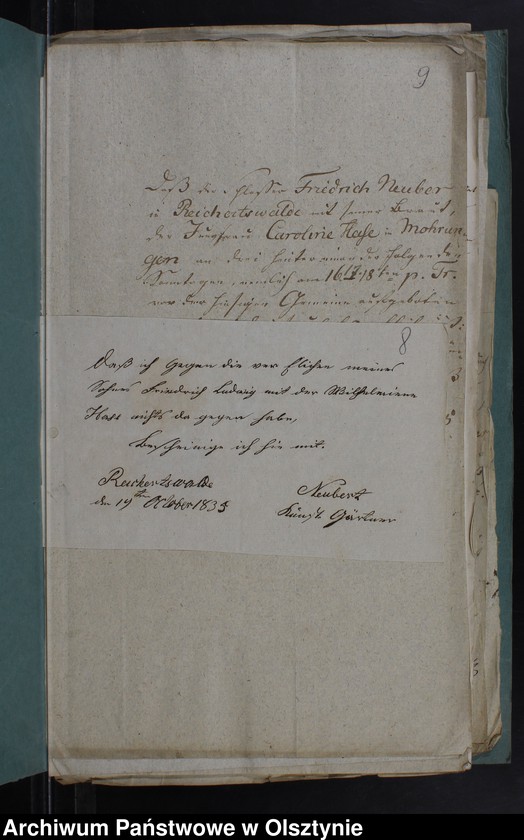 9
Daß der Schlosser Friedrich Neuber
in Reichertswalde mit seiner Braut,
der Jungfrau Caroline Hase in Mohrun-
gen an drei hinter einander folgenden
Sonntagen, nemlich am 16t 17t 18ten p. Tr.
vor der hiesigen Gemeine aufgeboten
8
Daß ich gegen die ver Elichen meines
Sohnes Friedrich Ludwig mit der Wilhelmiene
Hass nichts da gegen habe,
Bescheinige ich hie mit.
Reichertswalde
den 19ten October 1835
Neubert
Kunst Gärtner
Archiwum Państwowe w Olsztynie